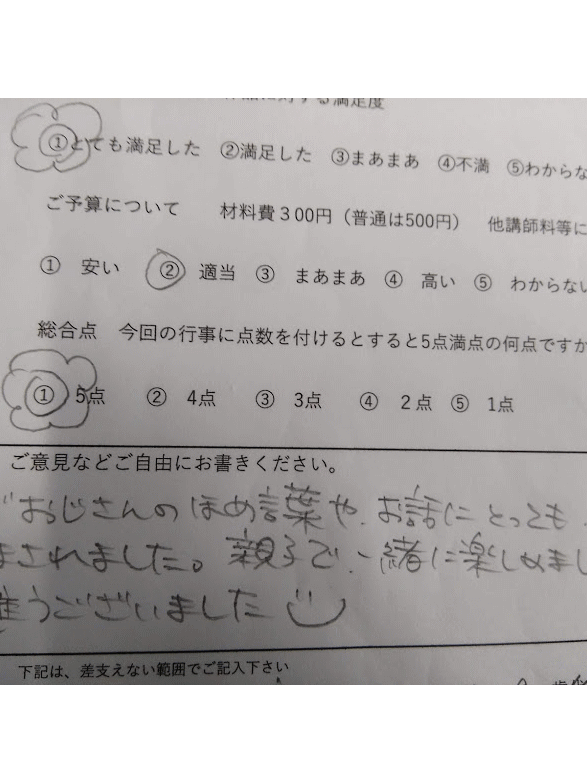 対する満足度
①とても満足した ②満足した ③まあまあ ④不満 ⑤わからな
ご予算について 材料費300円（普通は500円） 他講師料等に
① 安い ② 適当 ③ まあまあ ④ 高い ⑤ わからない
総合点 今回の行事に点数を付けるとすると5点満点の何点ですか
① 5点 ② 4点 ③ 3点 ④ 2点 ⑤ 1点
ご意見などご自由にお書きください。
おじさんのほめ言葉や、お話にとっても
まされました。親子で、一緒に楽しめまし
うございました
下記は、差支えない範囲でご記入下さい